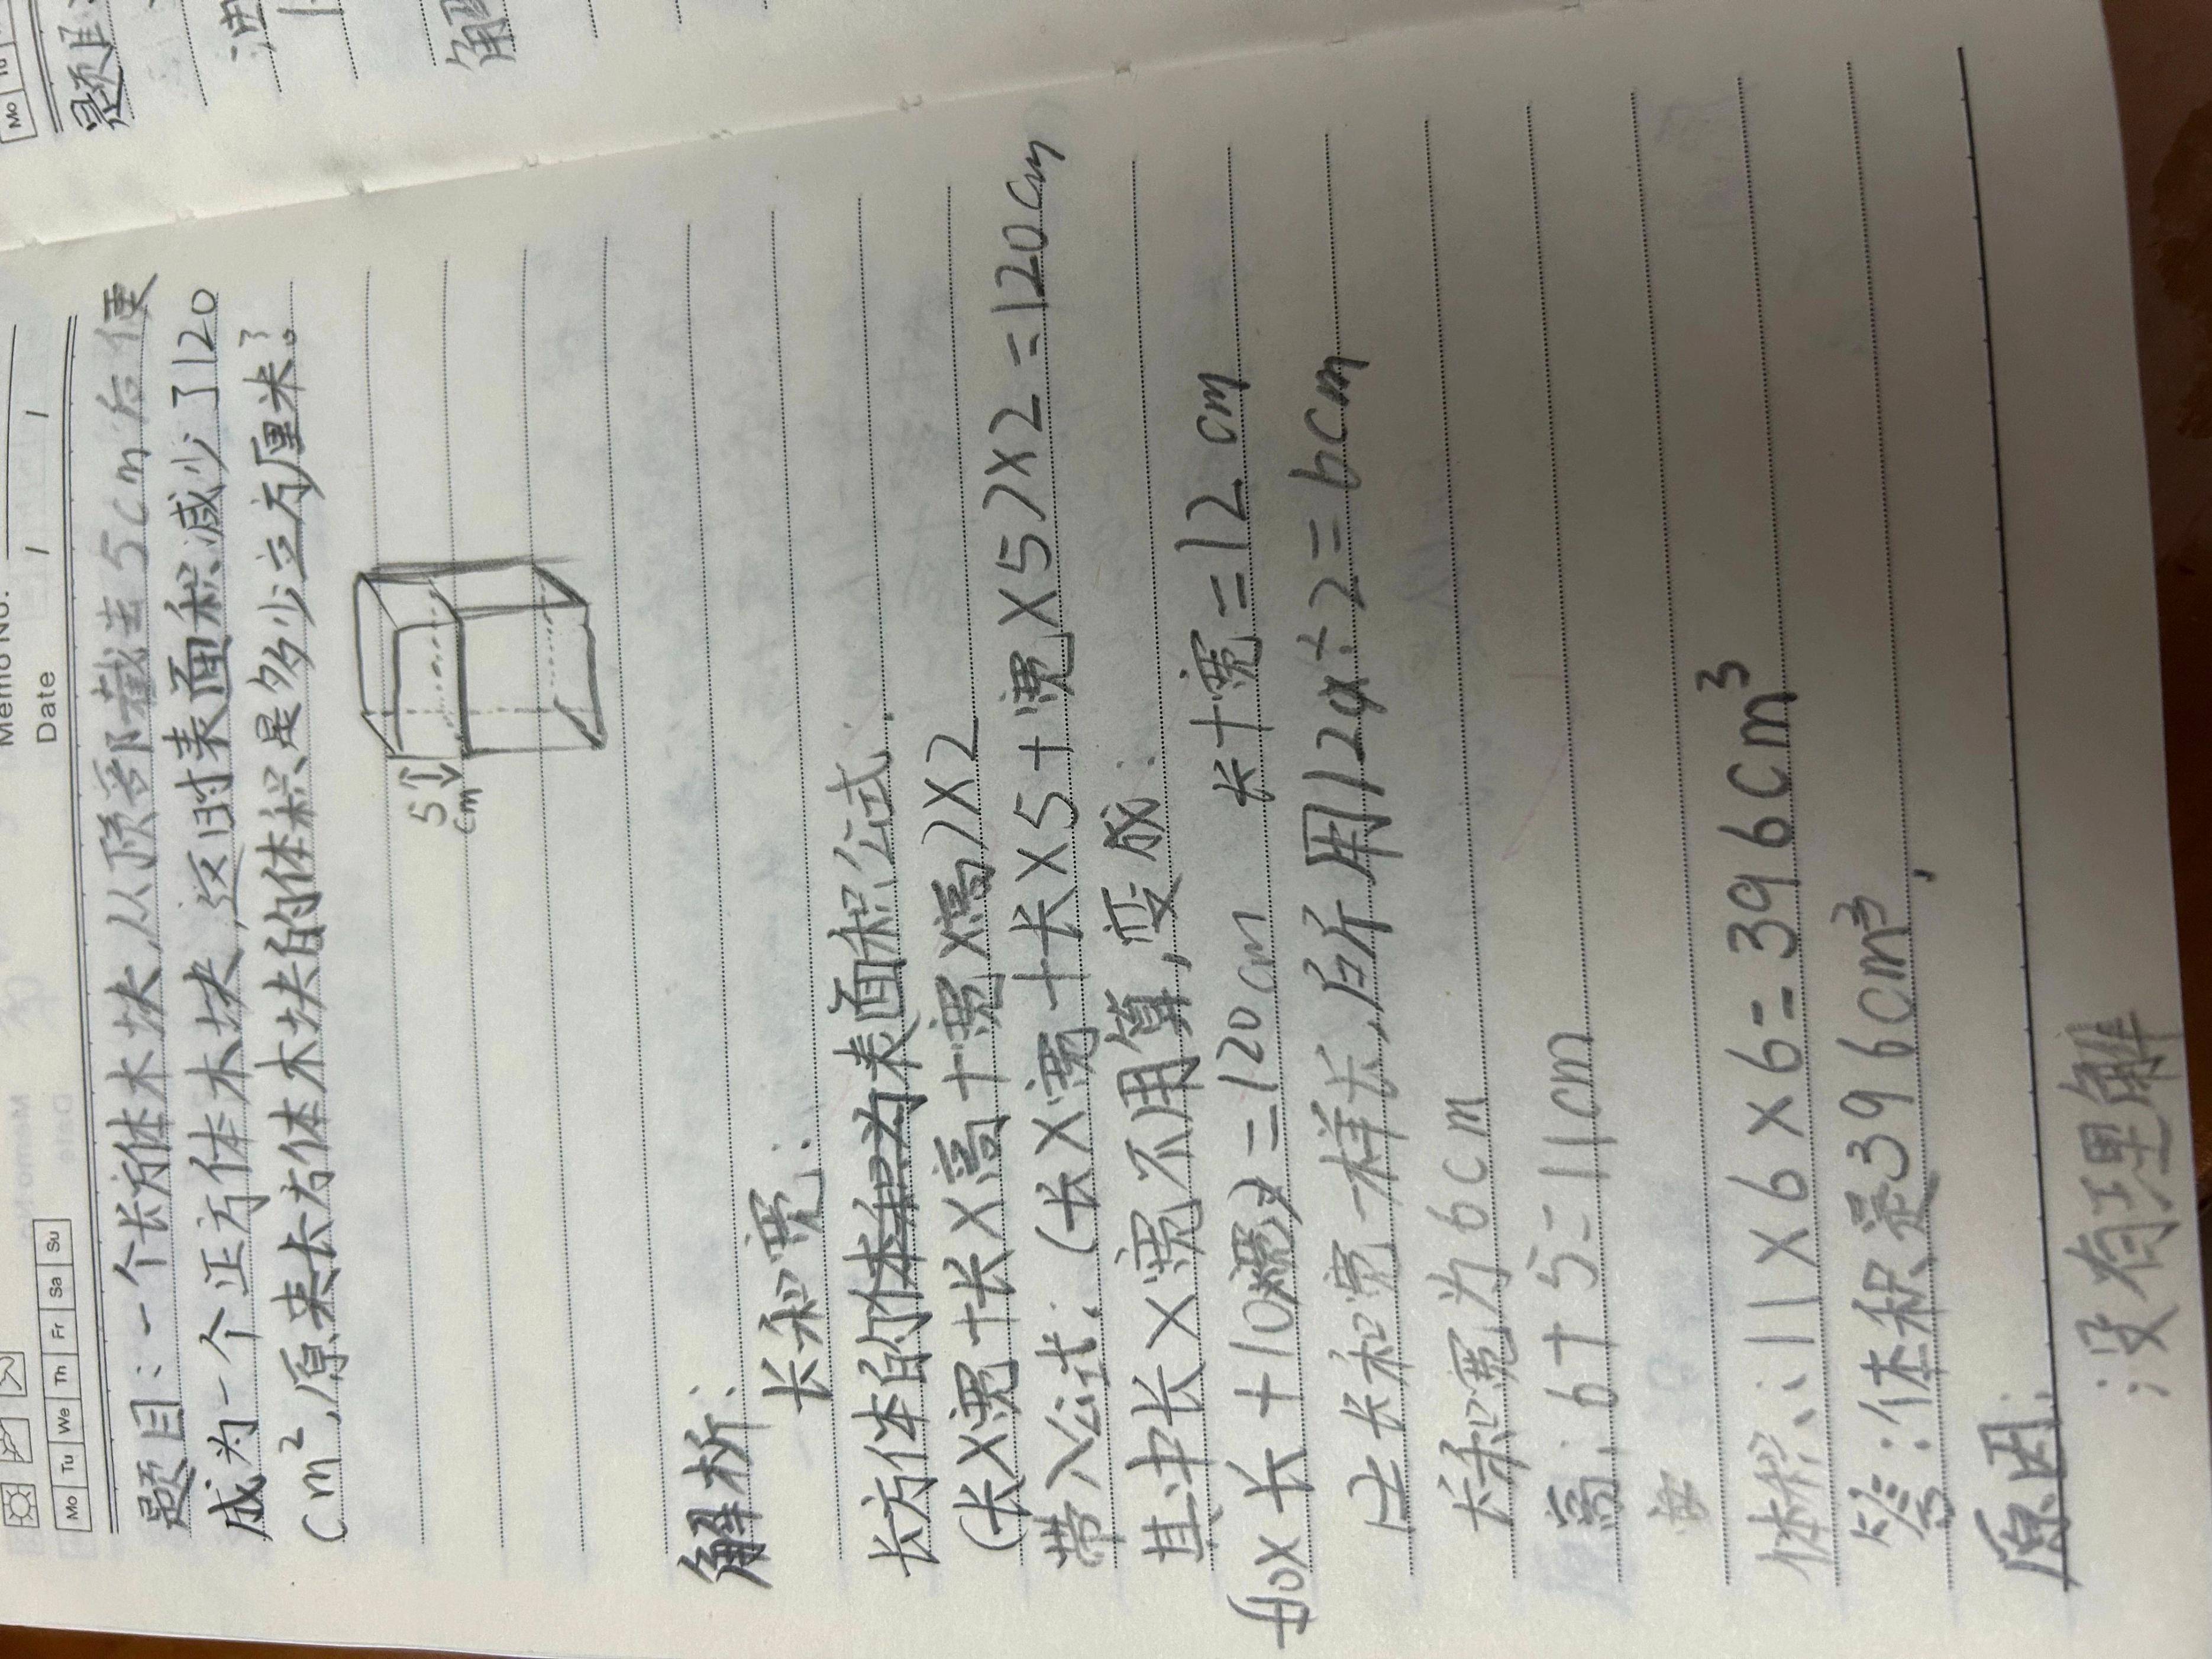 Memo No.
Date / /
Mo Tu We Th Fr Sa Su
题目：一个长方体木块，从顶部截去5cm后便
成为一个正方体木块，这时表面积减少了120
cm²，原来长方体木块的体积是多少立方厘米？
5
cm
解析：
长和宽：
长方体的体积为表面积公式：
(长×宽+长×高+宽×高)×2
带入公式：(长×宽+长×5+宽×5)×2=120cm
其中长×宽不用算，变成：
10×长+10宽=120cm 长+宽=12cm
且长和宽一样长，后斤用12÷2=6cm
长和宽为6cm
高：6+5=11cm
体积：11×6×6=396cm³
答：体积是396cm³.
原因：
：没有理解
Mo Tu
题目：
油
解